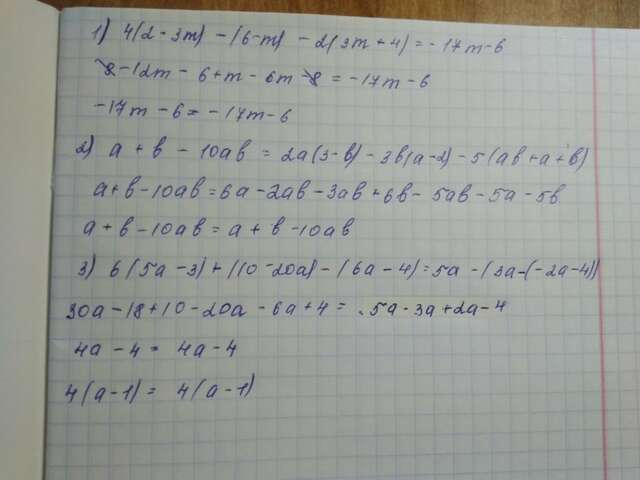 1) 4(2-3m) - (6-m) - 2(3m+4) = -17m-6
8-12m - 6+m - 6m-8 = -17m-6
-17m-6 = -17m-6
2) a+b-10ab = 2a(3-b) - 3b(a-2) - 5(ab+a+b)
a+b-10ab = 6a-2ab-3ab+6b-5ab-5a-5b
a+b-10ab = a+b-10ab
3) 6(5a-3)+(10-20a)-(6a-4) = 5a-(3a-(-2a-4))
30a-18+10-20a-6a+4 = 5a-3a+2a-4
4a-4 = 4a-4
4(a-1) = 4(a-1)